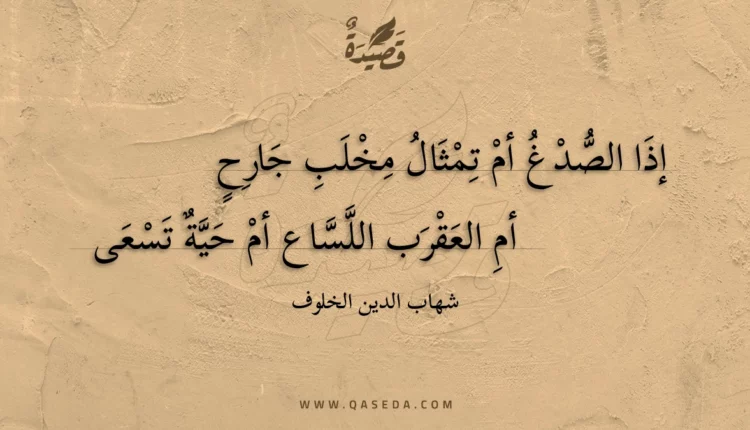 قَصِيْدَةٌ
إذَا الصُّدْغُ أمْ تِمْثَالُ مِخْلَبِ جَارِحٍ
أمِ العَقْرَب اللَّسَّاع أمْ حَيَّةٌ تَسْعَى
شهاب الدين الخلوف
WWW.QASEDA.COM